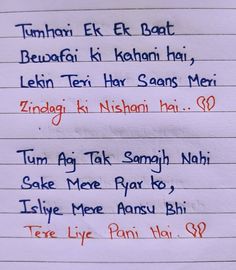 Tumhari Ek Ek Baat
Bewafai ki Kahani hai,
Lekin Teri Har Saans Meri
Zindagi ki Nishani hai..
Tum Aaj Tak Samajh Nahi
Sake Mere Pyar ko,
Isliye Mere Aansu Bhi
Tere Liye Pani Hai.